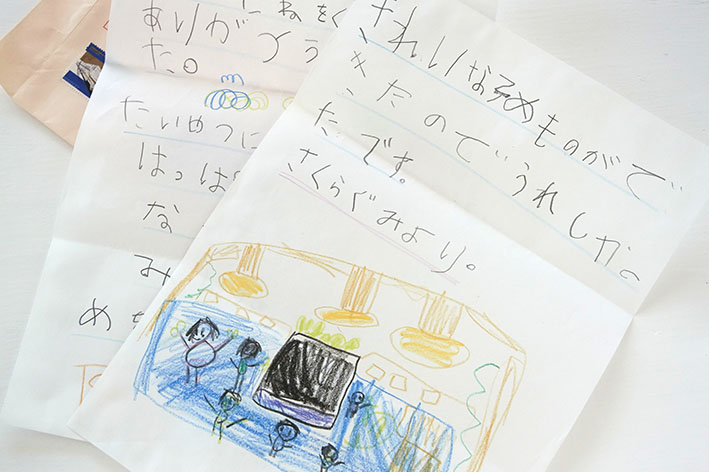 たねをく
ありがとう
た。
たいせつに
はっぱ
な
み
め
きれいなそめものがで
きたのでうれしか。
たです。
さくらぐみより。